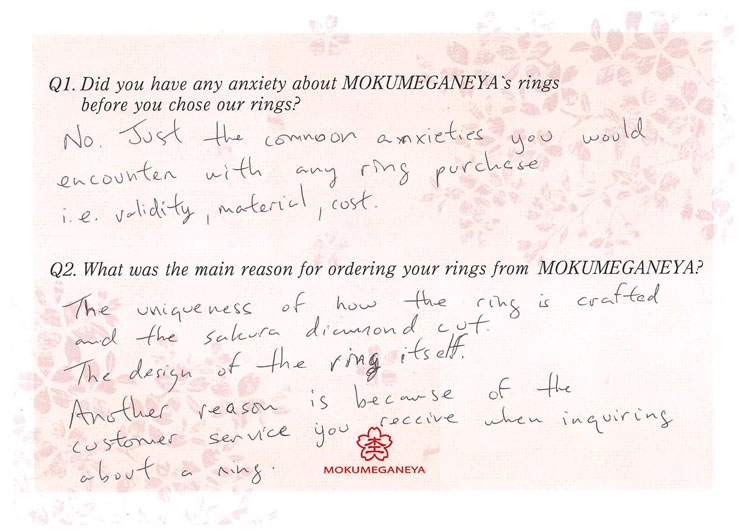 Q1. Did you have any anxiety about MOKUMEGANEYA`s rings
before you chose our rings?
No. Just the common anxieties you would
encounter with any ring purchase
i.e. validity, material, cost.
Q2. What was the main reason for ordering your rings from MOKUMEGANEYA?
The uniqueness of how the ring is crafted
and the sakura diamond cut.
The design of the ring itself.
Another reason is because of the
customer service you receive when inquiring
about a ring.
MOKUMEGANEYA